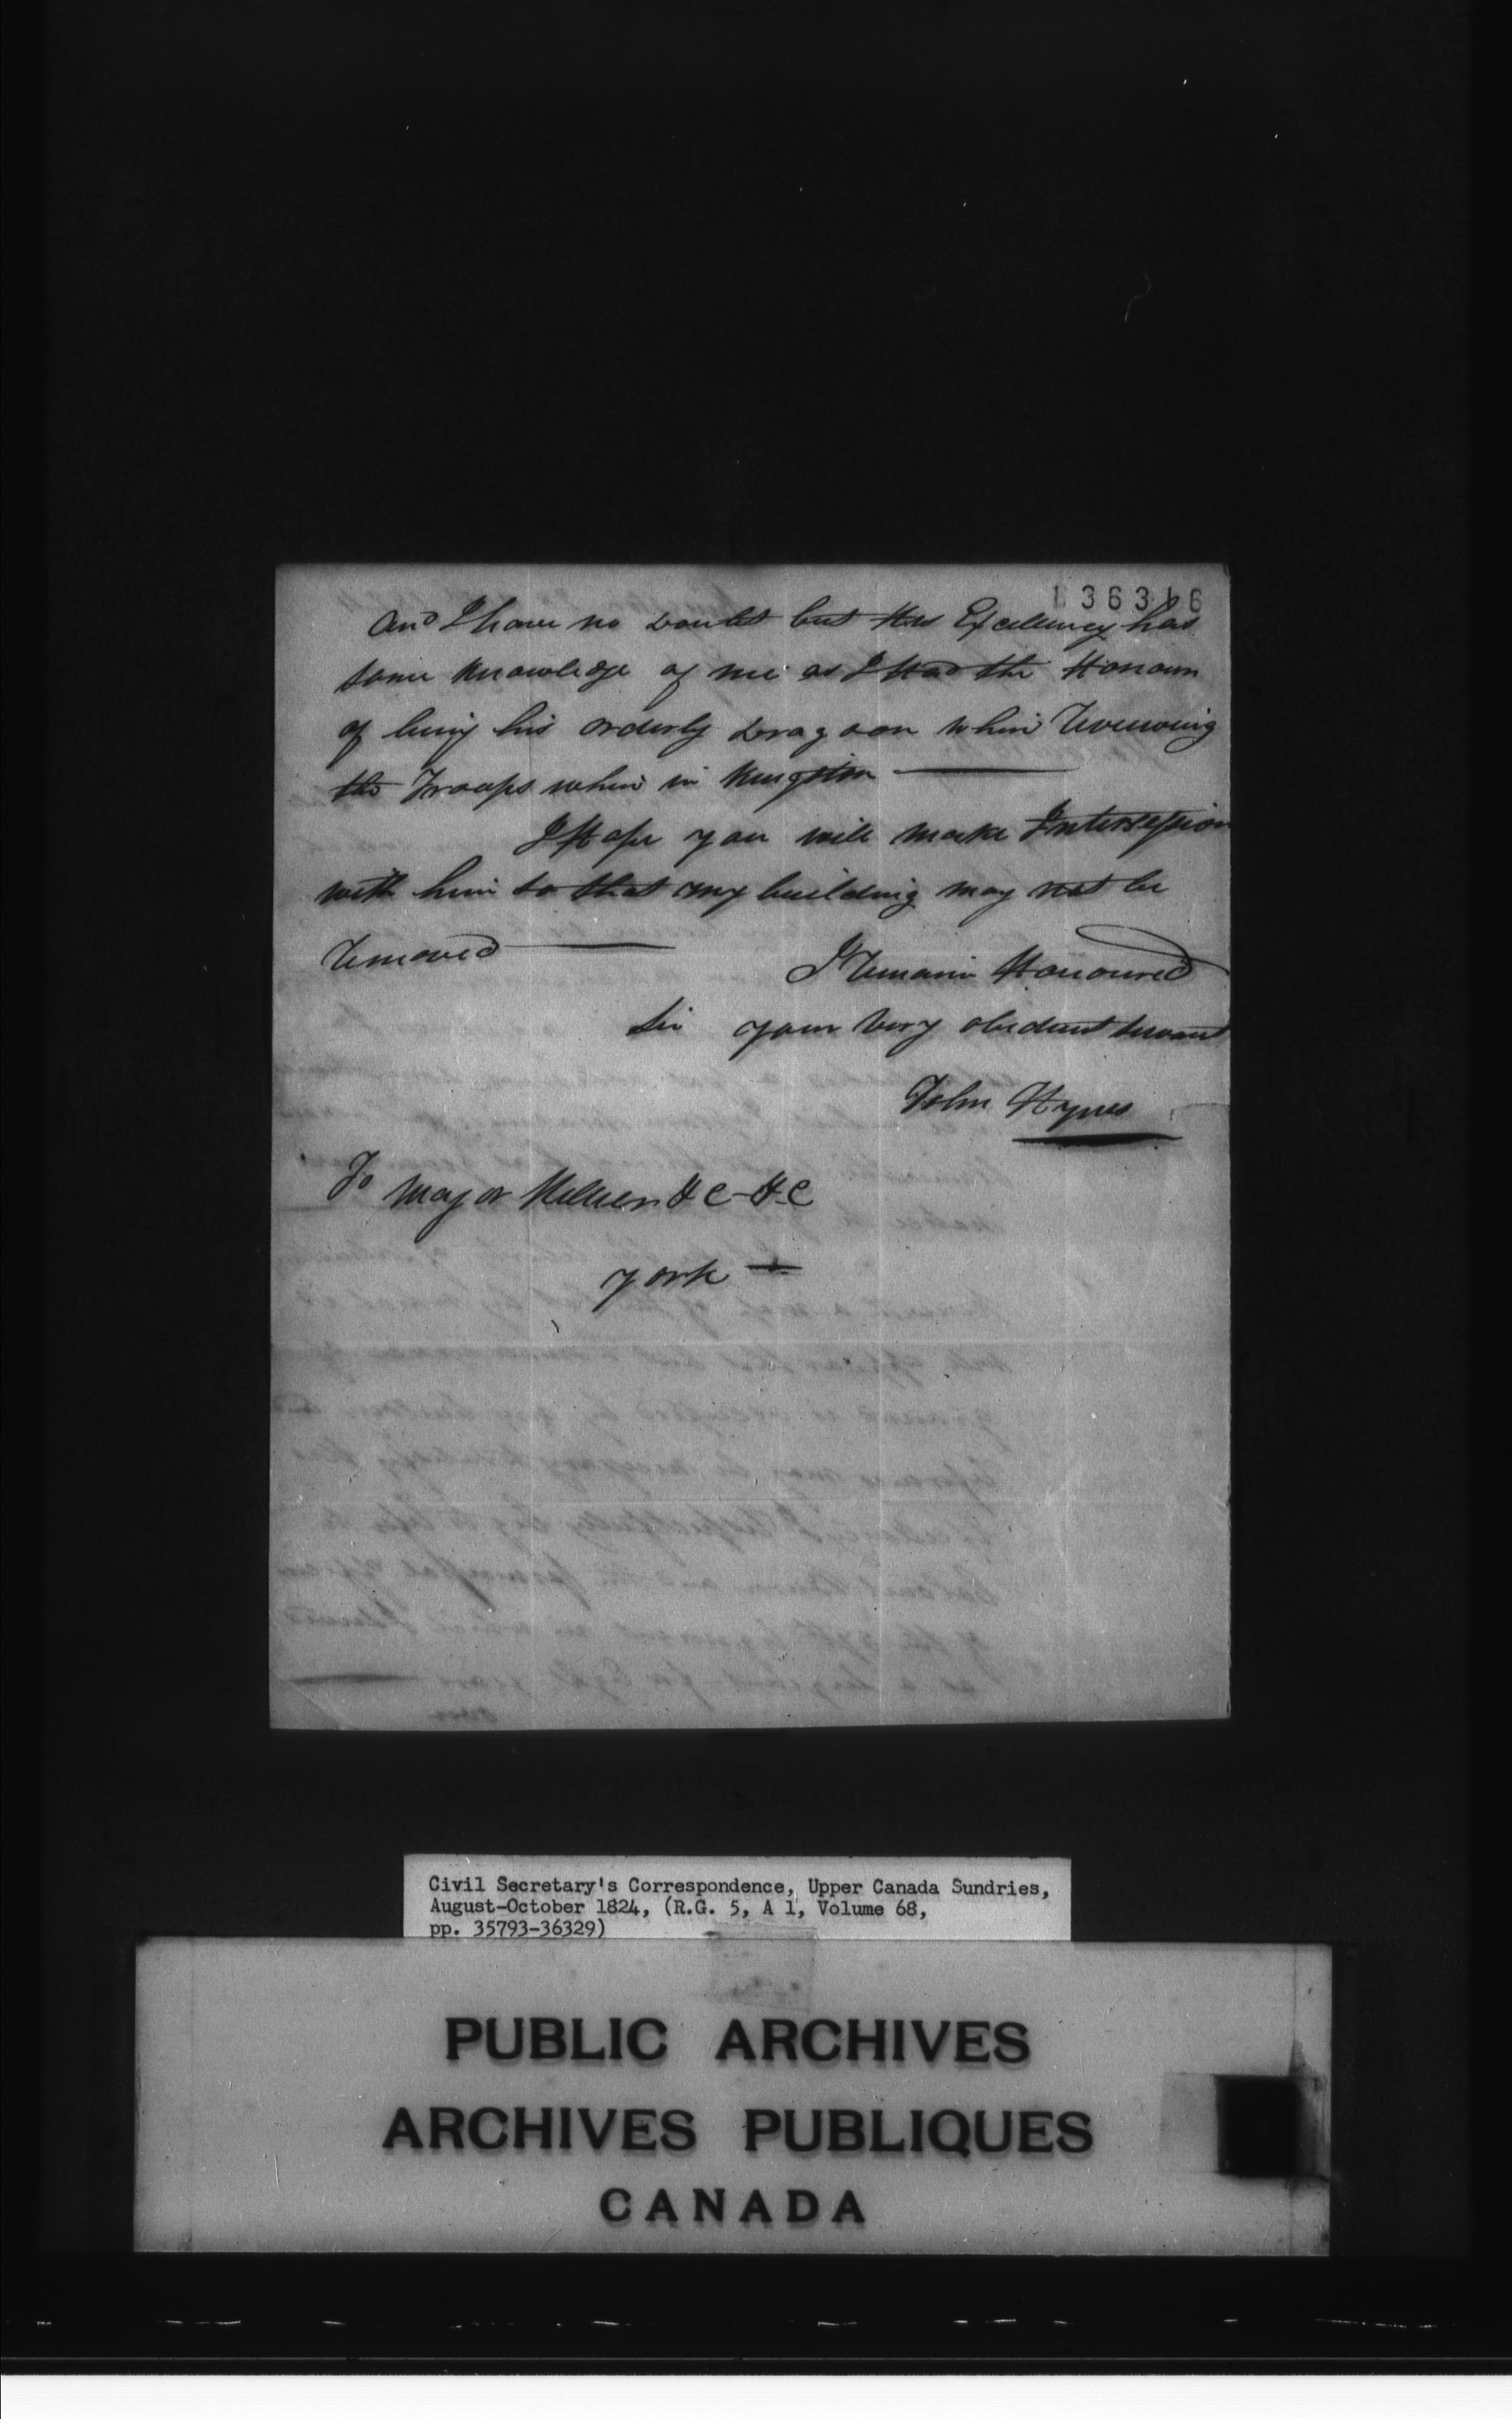 36316
And I have no Doubt but His Excellency has
some knowledge of me as I Had the Honour
of being his orderly Dragoon when Reveiwing
the Troops when in Kingston
I Hope you will make Intersession
with him so that my building may not be
Removed
I Remain Honoured
Sir your Very obedient servant
John Hynes
To Major Hillier &c &c
York
Civil Secretary's Correspondence, Upper Canada Sundries,
August-October 1824, (R.G. 5, A 1, Volume 68,
pp. 35793-36329)
PUBLIC ARCHIVES
ARCHIVES PUBLIQUES
CANADA